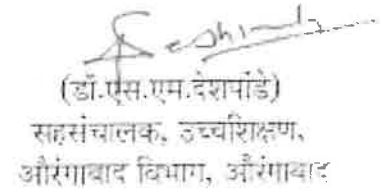 (डॉ.एस.एम.देशपांडे)
सहसंचालक, उच्चशिक्षण,
औरंगाबाद विभाग, औरंगाबाद